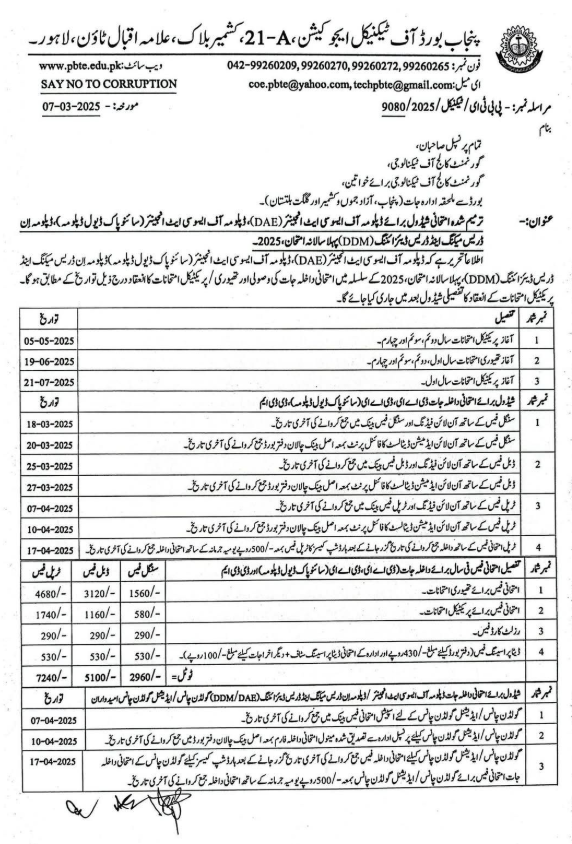 پنجاب بورڈ آف ٹیکنیکل ایجوکیشن، 21-A، کشمیر بلاک، علامہ اقبال ٹاؤن، لاہور۔
فون نمبر: 042-99260209, 99260270, 99260272, 99260265
ویب سائٹ: www.pbte.edu.pk
ای میل: coe.pbte@yahoo.com, techpbte@gmail.com
SAY NO TO CORRUPTION
مراسلہ نمبر:- پی بی ٹی ای/ٹیکنیکل/2025/9080
مورخہ:- 07-03-2025
بنام
تمام پرنسپل صاحبان،
گورنمنٹ کالج آف ٹیکنالوجی،
گورنمنٹ کالج آف ٹیکنالوجی برائے خواتین،
بورڈ سے ملحقہ ادارہ جات (پنجاب، آزاد جموں و کشمیر اور گلگت بلتستان)۔
عنوان:- ترمیم شدہ امتحانی شیڈول برائے ڈپلومہ آف ایسوسی ایٹ انجینئر (DAE)، ڈپلومہ آف ایسوسی ایٹ انجینئر (سائنو پاک ڈیول ڈپلومہ)، ڈپلومہ اِن
ڈریس میکنگ اینڈ ڈریس ڈیزائننگ (DDM) پہلا سالانہ امتحان، 2025۔
اطلاعاً تحریر ہے کہ ڈپلومہ آف ایسوسی ایٹ انجینئر (DAE)، ڈپلومہ آف ایسوسی ایٹ انجینئر (سائنو پاک ڈیول ڈپلومہ)، ڈپلومہ اِن ڈریس میکنگ اینڈ
ڈریس ڈیزائننگ (DDM)، پہلا سالانہ امتحان، 2025 کے سلسلہ میں امتحانی داخلہ جات کی وصولی اور تھیوری/پریکٹیکل امتحانات کا انعقاد درج ذیل تواریخ کے مطابق ہو گا۔
پریکٹیکل امتحانات کے انعقاد کا تفصیلی شیڈول بعد میں جاری کیا جائے گا۔
نمبر شمار تفصیل تواریخ
1 آغاز پریکٹیکل امتحانات سال دوئم، سوئم اور چہارم۔ 05-05-2025
2 آغاز تھیوری امتحانات سال اول، دوئم، سوئم اور چہارم۔ 19-06-2025
3 آغاز پریکٹیکل امتحانات سال اول۔ 21-07-2025
نمبر شمار شیڈول برائے امتحانی داخلہ جات ڈی اے ای، ڈی اے ای (سائنو پاک ڈیول ڈپلومہ)، ڈی ڈی ایم تواریخ
1 سنگل فیس کے ساتھ آن لائن فیڈنگ اور سنگل فیس بینک میں جمع کروانے کی آخری تاریخ۔ 18-03-2025
سنگل فیس کے ساتھ آن لائن ایڈمیشن ڈیٹا لسٹ کا فائنل پرنٹ بمعہ اصل بینک چالان دفتر بورڈ جمع کروانے کی آخری تاریخ۔ 20-03-2025
2 ڈبل فیس کے ساتھ آن لائن فیڈنگ اور ڈبل فیس بینک میں جمع کروانے کی آخری تاریخ۔ 25-03-2025
ڈبل فیس کے ساتھ آن لائن ایڈمیشن ڈیٹا لسٹ کا فائنل پرنٹ بمعہ اصل بینک چالان دفتر بورڈ جمع کروانے کی آخری تاریخ۔ 27-03-2025
3 ٹرپل فیس کے ساتھ آن لائن فیڈنگ اور ٹرپل فیس بینک میں جمع کروانے کی آخری تاریخ۔ 07-04-2025
ٹرپل فیس کے ساتھ آن لائن ایڈمیشن ڈیٹا لسٹ کا فائنل پرنٹ بمعہ اصل بینک چالان دفتر بورڈ جمع کروانے کی آخری تاریخ۔ 10-04-2025
4 ٹرپل فیس کے ساتھ داخلہ جمع کروانے کی تاریخ گزر جانے کے بعد ہارڈشپ کیسز کا ٹرپل فیس بمعہ -/500 روپے یومیہ جرمانہ کے ساتھ امتحانی داخلہ جمع کروانے کی آخری تاریخ۔ 17-04-2025
نمبر شمار تفصیل امتحانی فیس فی سال برائے داخلہ جات (ڈی اے ای، ڈی اے ای (سائنو پاک ڈیول ڈپلومہ) اور ڈی ڈی ایم سنگل فیس ڈبل فیس ٹرپل فیس
1 امتحانی فیس برائے تھیوری امتحانات۔ 1560/- 3120/- 4680/-
2 امتحانی فیس برائے پریکٹیکل امتحانات۔ 580/- 1160/- 1740/-
3 رزلٹ کارڈ فیس۔ 290/- 290/- 290/-
4 ڈیٹا پراسیسنگ فیس (دفتر بورڈ کیلئے مبلغ -/430 روپے اور ادارہ کے امتحانی ڈیٹا پراسیسنگ سٹاف + دیگر اخراجات کیلئے مبلغ -/100 روپے)۔ 530/- 530/- 530/-
ٹوٹل= 2960/- 5100/- 7240/-
نمبر شمار شیڈول برائے امتحانی داخلہ جات ڈپلومہ آف ایسوسی ایٹ انجینئر/ڈپلومہ اِن ڈریس میکنگ اینڈ ڈریس ڈیزائننگ (DDM/DAE) گولڈن چانس/ایڈیشنل گولڈن چانس امیدواران تواریخ
1 گولڈن چانس/ایڈیشنل گولڈن چانس کے لئے اسپیشل امتحانی فیس بینک میں جمع کروانے کی آخری تاریخ۔ 07-04-2025
2 گولڈن چانس/ایڈیشنل گولڈن چانس کیلئے پرنسپل ادارہ سے تصدیق شدہ مینوئل امتحانی داخلہ فارم بمعہ اصل بینک چالان دفتر بورڈ میں جمع کروانے کی آخری تاریخ۔ 10-04-2025
3 گولڈن چانس/ایڈیشنل گولڈن چانس کیلئے امتحانی داخلہ فیس جمع کروانے کی آخری تاریخ گزر جانے کے بعد ہارڈشپ کیسز کیلئے گولڈن چانس کے امتحانی داخلہ 17-04-2025
جات امتحانی فیس برائے گولڈن چانس/ایڈیشنل گولڈن چانس بمعہ -/500 روپے یومیہ جرمانہ کے ساتھ امتحانی داخلہ جمع کروانے کی آخری تاریخ۔